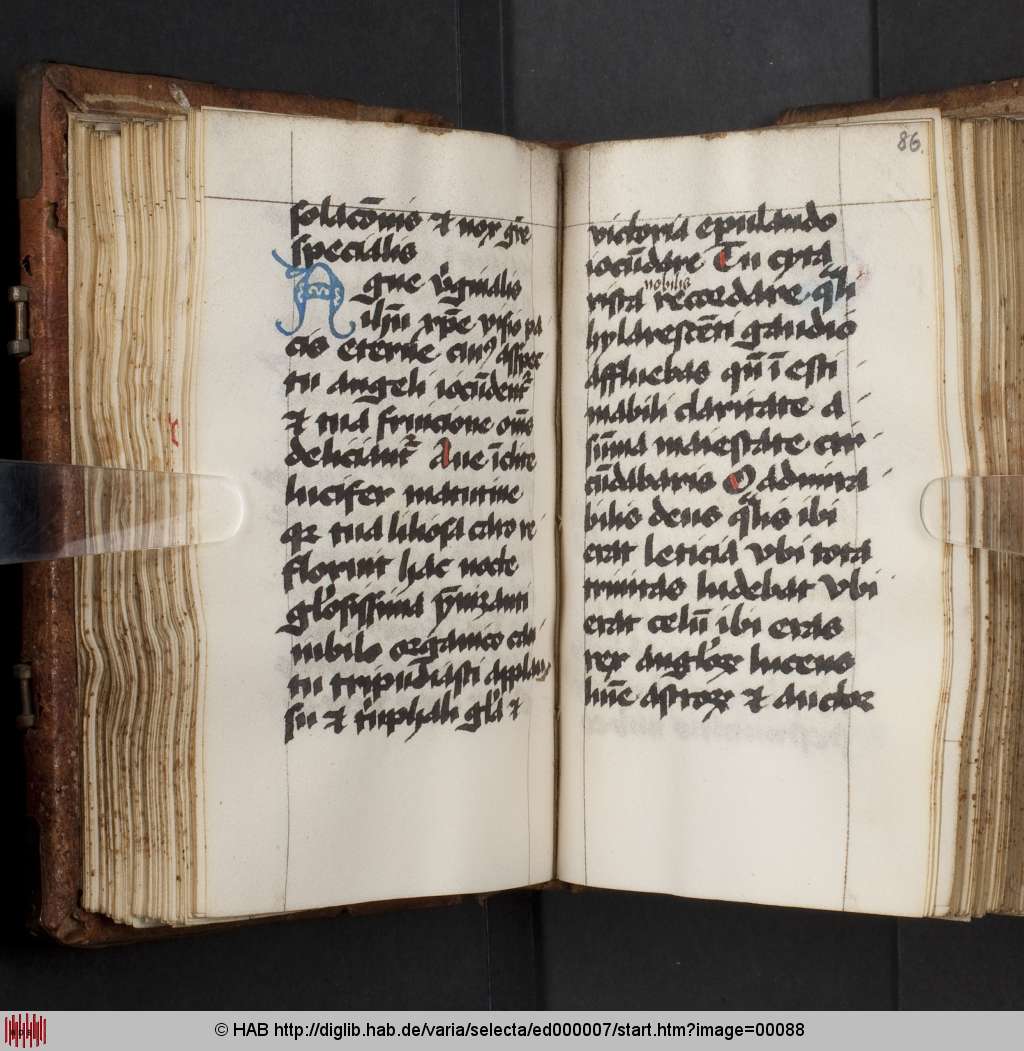 solacōnis et nox gr̄e
specialis
Agne v̓ginalis
filiū xp̄e visio pa
cis eterne cui9 aspec
tu angeli iocūdent᷑
et tua fruicione oms̄
deliciant᷑ Aue īclite
lucifer matutine
qr tua liliosa caro re
floruit hac nocte
glosissima
iubilo organico can
tu tripudiasti applau
su et triūphali gla et
86.
victoria epulando
iocūdare Tu cyta
rista nobilis recordare qͣli
hylarescēti gaudio
affluebas qn̄ ī esti
mabili claritate a
sūma maiestate cir
cūdabaris O admira
bilis deus qͣlis ibi
erat leticia vbi tota
trinitas ludebat Vbi
erat celū ibi eras
rex angloꝝ lucens
lum̄e astroꝝ et auctor
© HAB http://diglib.hab.de/varia/selecta/ed000007/start.htm?image=00088